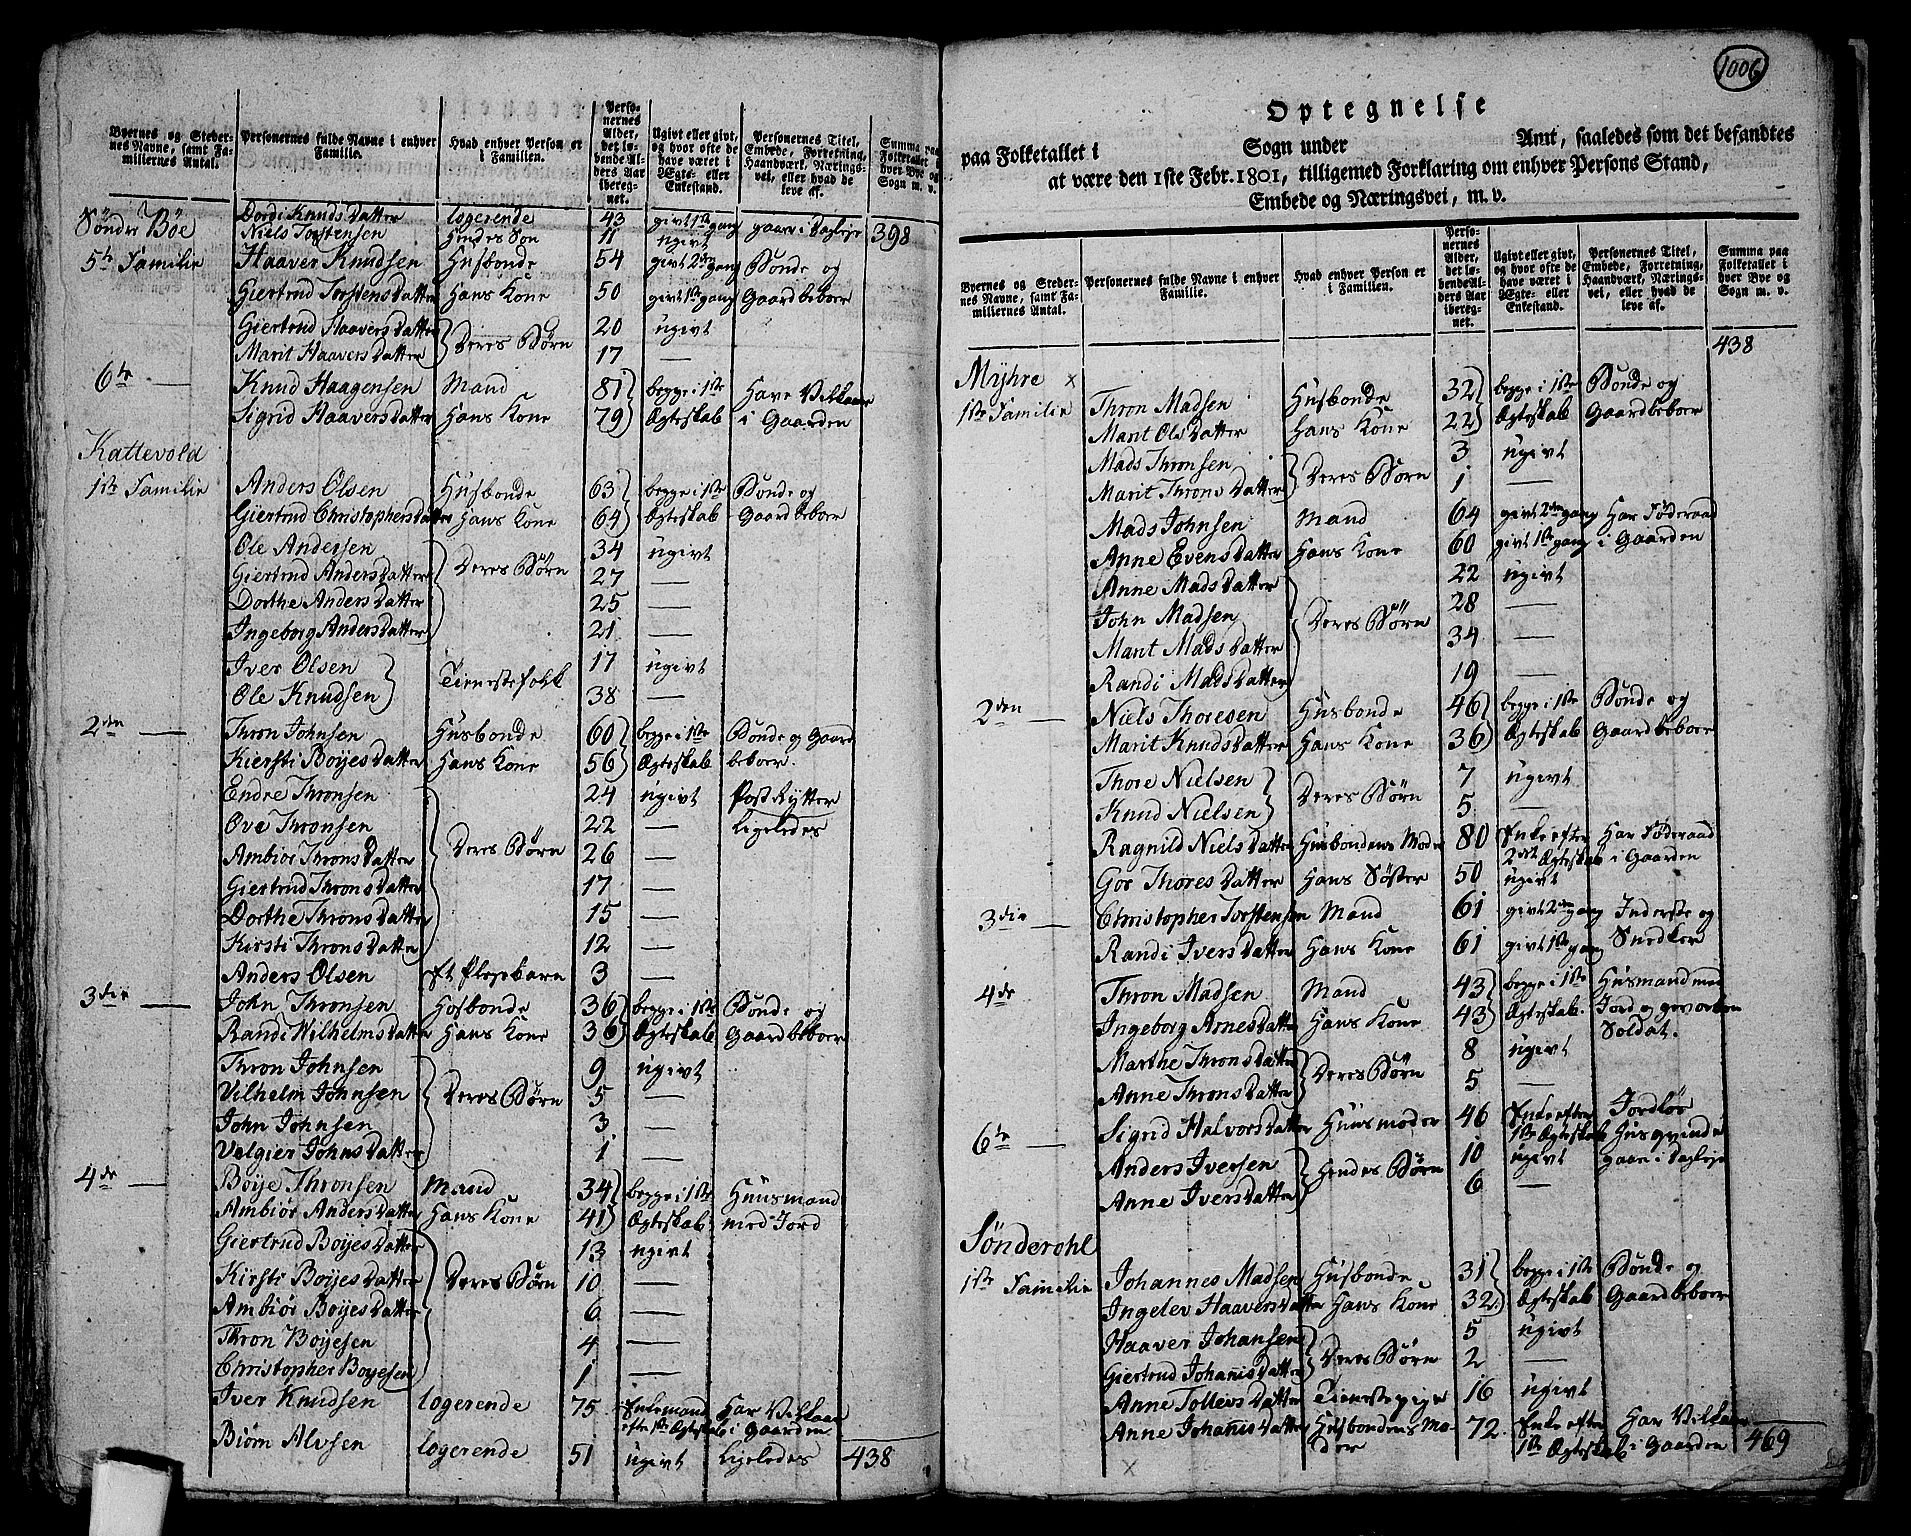 Byernes og Steder-
nes Navne, samt Fa-
miliernes Antal.
Personernes fulde Navne i enhver
Familie.
Hvad enhver Person er
i Familien.
Perso-
nernes
Alder,
det lø-
bende Al-
ders Aar
ibereg-
net.
Ugivt eller givt,
og hvor ofte de
have været i
Ægte- eller
Enkestand.
Personernes Titel,
Embede, Forretning,
Haandværk, Nærings-
vei, eller hvad de
leve af.
Summa paa
Folketallet i
hver Bye og
Sogn m. v.
Sönder Böe Dordi Knuds Datter logerende 43 givt 1ste gang gaaer i Dagleje 398
Niels Torstensen Hendes Sön 11 ugivt
5te Familie Haaver Knudsen Husbonde 54 givt 2den gang Bonde og
Giertrud Torstens Datter Hans Kone 50 givt 1ste gang Gaardbeboer
Giertrud Haavers Datter } Deres Börn 20 ugivt
Marit Haavers Datter 17 —
6te — Knud Haagensen Mand 81 } begge i 1ste Have Vilkaar
Sigrid Haavers Datter Hans Kone 79 } Ægteskab i Gaarden
Kattevold
1ste Familie Anders Olsen Husbonde 63 } begge i 1ste Bonde og
Giertrud Christophers Datter Hans Kone 64 } Ægteskab Gaardbeboer
Ole Andersen } Deres Börn 34 ugivt
Giertrud Anders Datter 27 —
Dorthe Anders Datter 25 —
Ingeborg Anders Datter 21 —
Iver Olsen } Tienestefolk 17 ugivt
Ole Knudsen 38 —
2den — Thron Johnsen Husbonde 60 } begge i 1ste Bonde og Gaard
Kiersti Boyes Datter Hans Kone 56 } Ægteskab beboer.
Endre Thronsen } Deres Börn 24 ugivt Post Rytter
Ove Thronsen 22 — Ligeledes
Ambiör Throns Datter 26 —
Giertrud Throns Datter 17 —
Dorthe Throns Datter 15 —
Kirsti Throns Datter 12 —
Anders Olsen Et Plejebarn 3 —
3die — John Thronsen Hosbonde 36 } begge i 1ste Bonde og
Randi Wilhelms Datter Hans Kone 36 } Ægteskab Gaardbeboer
Thron Johnsen } Deres Börn 9 ugivt
Vilhelm Johnsen 5 —
John Johnsen 3 —
Valgier Johns Datter 1 —
4de — Boye Thronsen Mand 34 } begge i 1ste Huusmand
Ambiör Anders Datter Hans Kone 41 } Ægteskab med Jord
Giertrud Boyes Datter } Deres Börn 13 ugivt
Kirsti Boyes Datter 10 —
Ambiör Boyes Datter 6 —
Thron Boyesen 4 —
Christopher Boyesen 1 —
Iver Knudsen logerende 75 Enkemand Har Vilkaar
efter 1ste Ægteskab i Gaarden
Biörn Alvsen logerende 51 ugivt Ligeledes 438
1006
Optegnelse
paa Folketallet i Sogn under Amt, saaledes som det befandtes
at være den 1ste Febr. 1801, tilligemed Forklaring om enhver Persons Stand,
Embede og Næringsvei, m. v.
Byernes og Steder-
nes Navne, samt Fa-
miliernes Antal.
Personernes fulde Navne i enhver
Familie.
Hvad enhver Person er
i Familien.
Perso-
nernes
Alder,
det lø-
bende Al-
ders Aar
ibereg-
net.
Ugivt eller givt,
og hvor ofte de
have været i
Ægte- eller
Enkestand.
Personernes Titel,
Embede, Forretning,
Haandværk, Nærings-
vei, eller hvad de
leve af.
Summa paa
Folketallet i
hver Bye og
Sogn m. v.
438
Myhre x
1ste Familie Thron Madsen Husbonde 32 } begge i 1ste Bonde og
Marit Ols Datter Hans Kone 22 } Ægteskab Gaardbeboer
Mads Thronsen } Deres Börn 3 ugivt
Marit Throns Datter 1 —
Mads Johnsen Mand 64 givt 2den gang Har Föderaad
Anne Evens Datter Hans Kone 60 givt 1ste gang i Gaarden
Anne Mads Datter } Deres Börn 22 ugivt
John Madsen 28 —
Marit Mads Datter 34 —
Randi Mads Datter 19 —
2den — Niels Thoresen Husbonde 46 } begge i 1ste Bonde og
Marit Knuds Datter Hans Kone 36 } Ægteskab Gaardbeboer
Thore Nielsen } Deres Börn 7 ugivt
Knud Nielsen 5 —
Ragnild Niels Datter Husbondens Moder 80 Enke efter Har Föderaad
2det Ægteskab i Gaarden
Gor Thores Datter Hans Söster 50 ugivt
3die — Christopher Torstensen Mand 61 givt 2den gang Inderste og
Randi Ivers Datter Hans Kone 61 givt 1ste gang Snedker
4de Thron Madsen Mand 43 } begge i 1ste Husmand med
Ingeborg Arnes Datter Hans Kone 43 } Ægteskab. Jord og gevorben
Soldat.
Marthe Throns Datter } Deres Börn 8 ugivt
Anne Throns Datter 5 —
6te — Sigrid Halvors Datter Huusmoder 46 Enke efter Jordlös
1ste Ægteskab Husqvinde
Anders Iversen } Hendes Börn 10 ugivt gaar i Dagleje
Anne Ivers Datter 6 —
Sönderohl
1ste Familie Johannes Madsen Husbonde 31 } begge i 1ste Bonde og
Ingelev Haavers Datter Hans Kone 32 } Ægteskab Gaardbeboer
Haaver Johansen } Deres Börn 5 ugivt
Giertrud Johannis Datter 2 —
Anne Tollevs Datter Tienestepige 16 ugivt
Anne Johannis Datter Husbondens Mo- 72. Enke efter Har Vilkaar
der 1ste Ægteskab i Gaarden 469
x